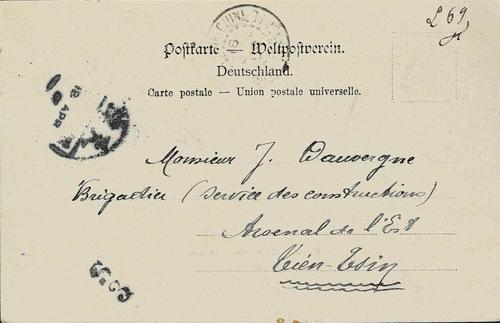 L 69
Postkarte — Weltpostverein.
Deutschland.
Carte postale — Union postale universelle.
18 APR
Monsieur J. Dauvergne
Brigadier (service des constructions)
Arsenal de l'Est
Tién-Tsin